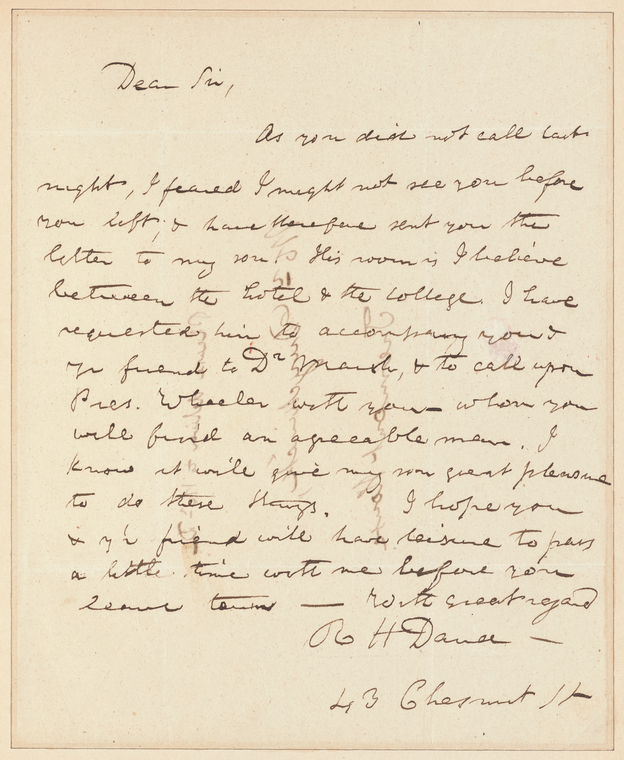 Dear Sir,
As you did not call last
night, I feared I might not see you before
you left, & have therefore sent you the
letter to my son. His room is I believe
between the hotel & the college. I have
requested him to accompany you &
yr friend to Dr Marsh, & to call upon
Pres. Wheeler with you — whom you
will find an agreeable man. I
know it will give my son great pleasure
to do these things. I hope you
& yr friend will have leisure to pass
a little time with me before you
leave town — With great regard
R H Dana —
43 Chesnut St